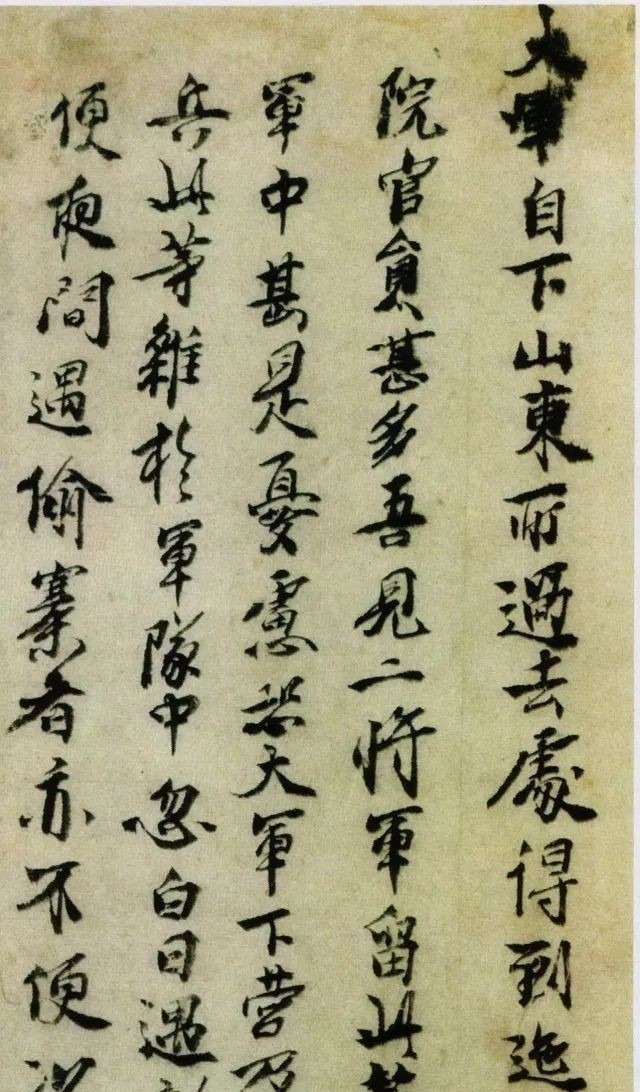 大軍自下山東所過去處得到迤
院官員甚多吾見二將軍留此
軍中甚是憂慮恐大軍下營乃
兵此等雜於軍隊中忽白日遇
便夜間遇偷寨者亦不便